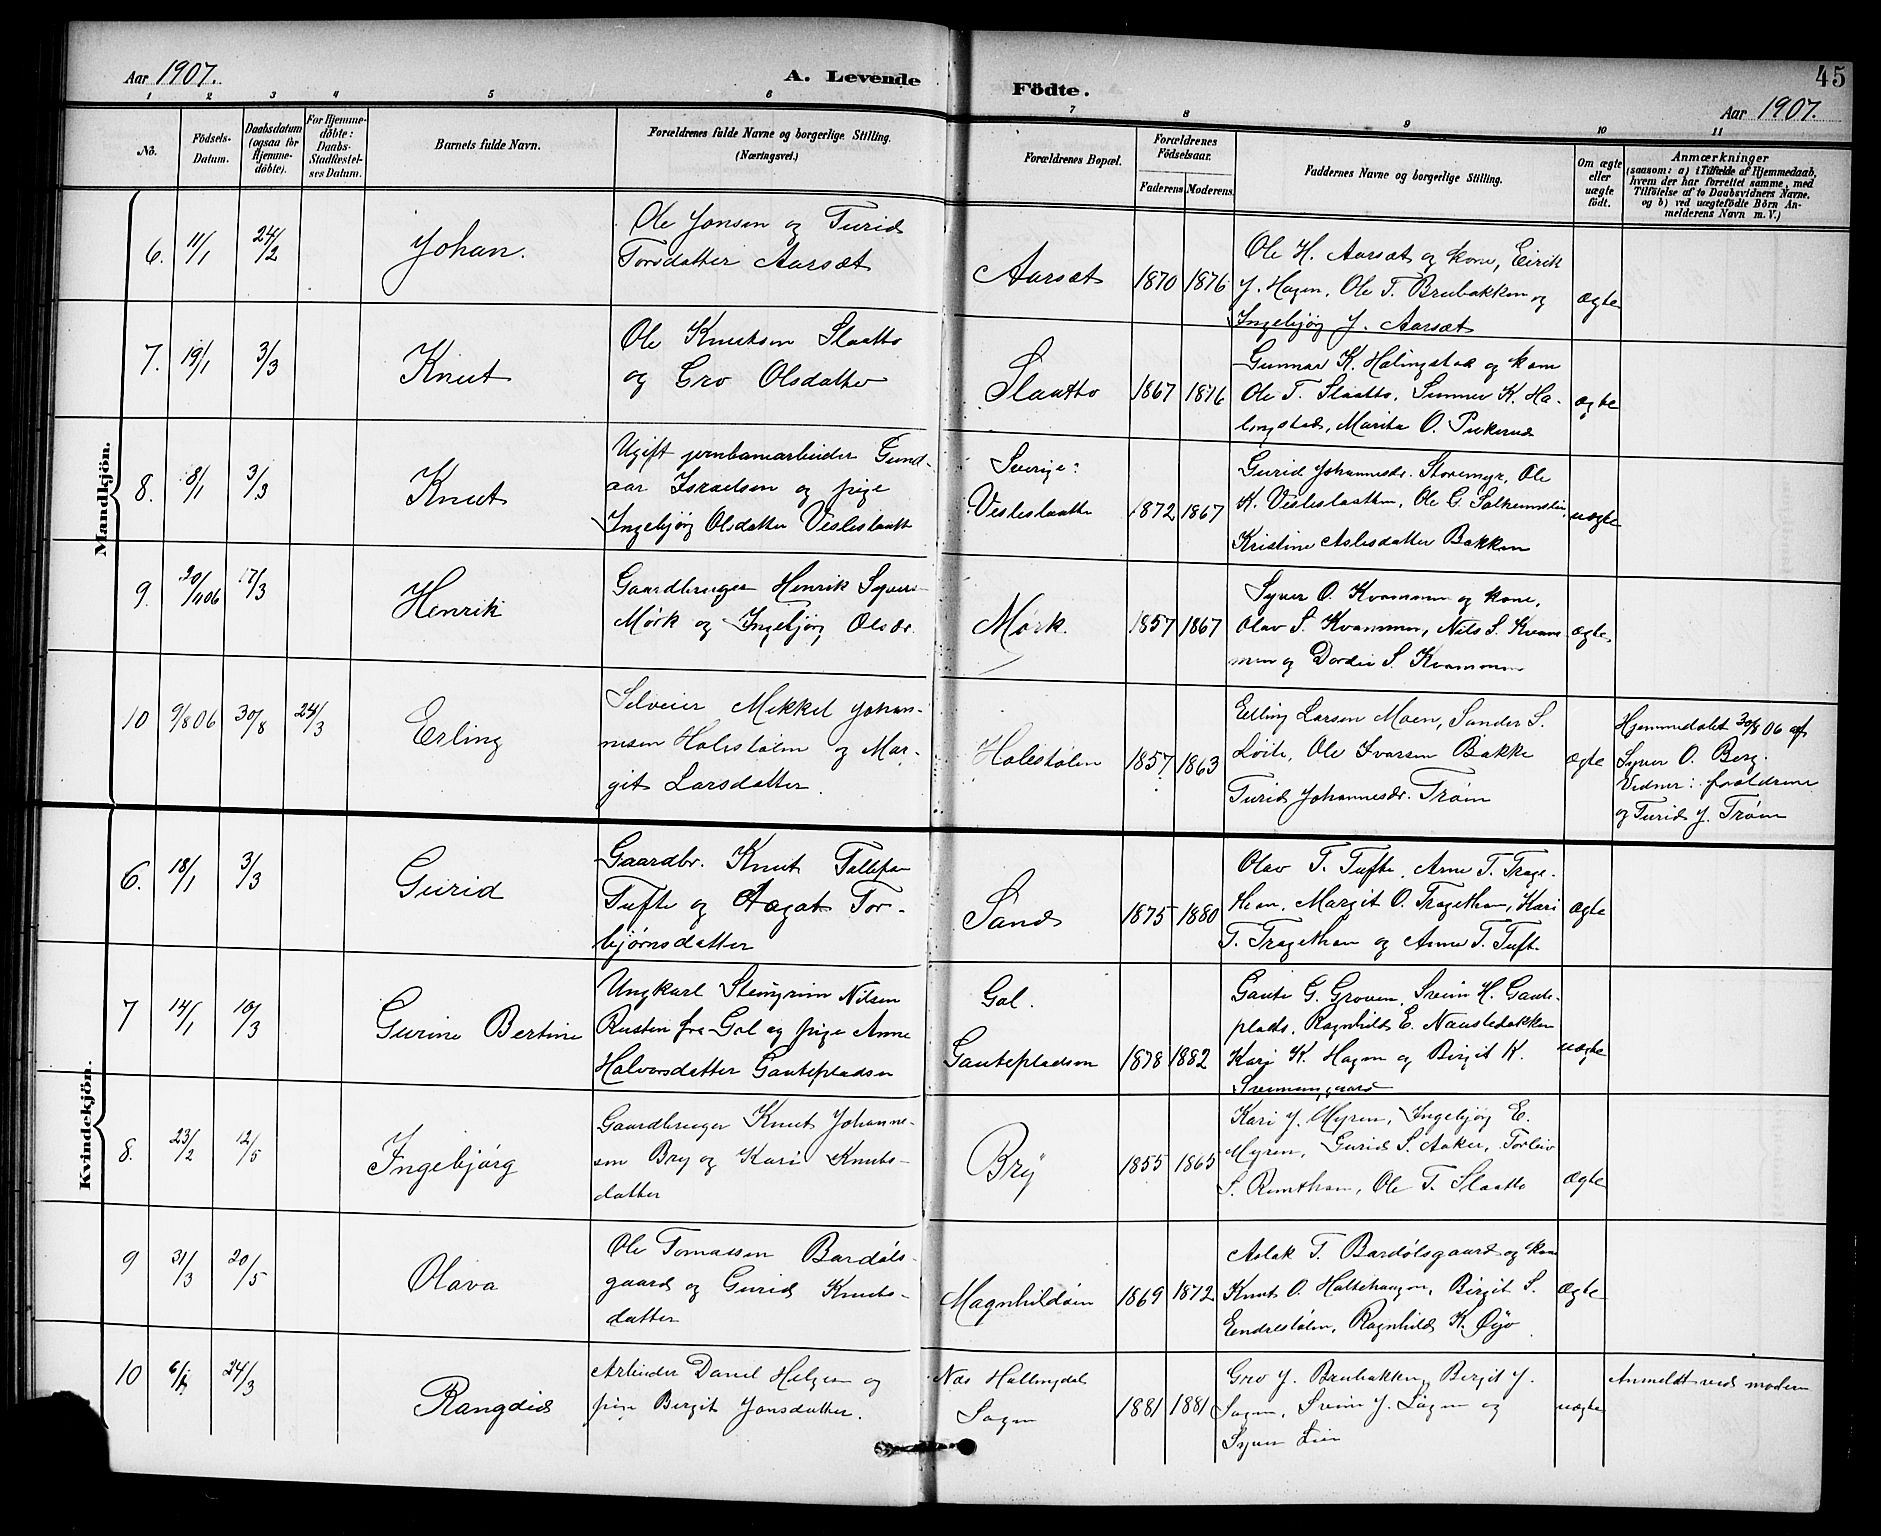 Aar 1907.
A. Levende
Födte.
45
Aar 1907.
1 2 3 4 5 6 7 8 9 10 11
No.
Födsels-
Datum.
Daabsdatum
(ogsaa for
Hjemme-
döbte).
For Hjemme-
döbte:
Daabs-
Stadfestel-
ses Datum.
Barnets fulde Navn.
Forældrenes fulde Navne og borgerlige Stilling.
(Næringsvei.)
Forældrenes Bopæl.
Forældrenes
Födselsaar.
Faderens. Moderens.
Faddernes Navne og borgerlige Stilling.
Om ægte
eller
uægte
födt.
Anmærkninger
(saasom: a) i Tilfælde af Hjemmedaab,
hvem der har forrettet samme, med
Tilföielse af to Daabsvidners Navne.
og b) ved uægtefödte Börn An-
melderens Navn m. V.)
Mandkjön.
6. 11/1 24/2 Johan.
Ole Jonsen og Turid
Torsdatter Aarsæt
Aarsæt 1870 1876
Ole H. Aarsæt og kone, Eirik
J. Hagen, Ole T. Brubakken og
Ingebjøg J. Aarsæt
ægte
7. 19/1 3/3 Knut
Ole Knutsen Slaatto
og Gro Olsdatter
Slaatto 1867 1876
Gunnar K. Halingstad og kone
Ole T. Slaatto, Gunner K. Ha-
lingstad, Marita O.
ægte
8. 8/1 3/3 Knut
Ugift jernbanearbeider Gund-
aar Israelsen og pige
Ingebjørg Olsdatter Vesleslaatt
Sverige:
Vesleslaatte 1872 1867
Gurid Johannesdr. Storemyr, Ole
K. Vesleslaatten, Ole G.
Kristine Aslesdatter Bakken
uægte
9. 20/11 06 17/3 Henrik
Gaardbruger Henrik Syvers-
Mørk og Ingebjørg Olsdr.
Mørk. 1857 1867
Syver O. Kvammen og kone,
Olav S. Kvammen, Nils S. Kvam-
men og Dordei S. Kvammen
ægte
10 9/8 06 30/8 24/3 Erling
Selveier Mekkel Johan-
nesen Halestølen og Mar-
git Larsdatter.
Halestølen 1857 1863
Elling Larsen Moen, Sander S.
Løite, Ole Ivarsen Bakke
Turid Johannesdr. Trøim
ægte
Hjemmedøbt 30/8 06 af
Syver O. Berg.
Vidner: forældrene
og Turid J. Trøim
Kvindekjön.
6. 18/1 3/3 Gurid
Gaardbr. Knut Tollefsen
Tufte og Aagot Tor-
bjørnsdatter
Sand 1875 1880
Olav T. Tufte, Arne T. Trage-
ton, Margit O. Tragethon, Kari
T. Tragethon og Anne T. Tufte
ægte
7 14/1 10/3 Gurine Bertine
Ungkarl Steingrim Nilsen
Rusten fra Gol og pige Anne
Halvorsdatter Gautepladsen
Gol.
Gautepladsen 1878 1882
Gaute G. Groven, Svein H. Gaute-
plads, Ragnhild E. Naustebakken
Kari K. Hagen og Birgit K.
uægte
8. 23/2 12/5 Ingebjørg
Gaardbruger Knut Johanne-
sen Bry og Kari Knuts-
datter
Bry 1855 1865
Kari J. Myren, Ingebjørg E.
Myren, Gurid S. Aaker, Torleiv
S. Ramthon, Ole T. Slaatto
ægte
9 31/3 20/5 Olava
Ole Tomassen Bardøls-
gaard og Gurid Knuts-
datter
Magnhildøin 1869 1872
Aslak T. Bardølsgaard og kone
Knut O. Haltehaugen, Birgit S.
Eendrestølen, Ragnhild K. Øyo
ægte
10 24/3 Rangdid
Arbeider Daniel Helgesen og
pige Bergit Jonsdatter.
Nes Hallingdal
Sagen 1881 1881
Gro J. Brubakken, Bergit J.
Sagen, Svein J. Sagen og
Syver Lien
uægte
Anmeldt ved moderen